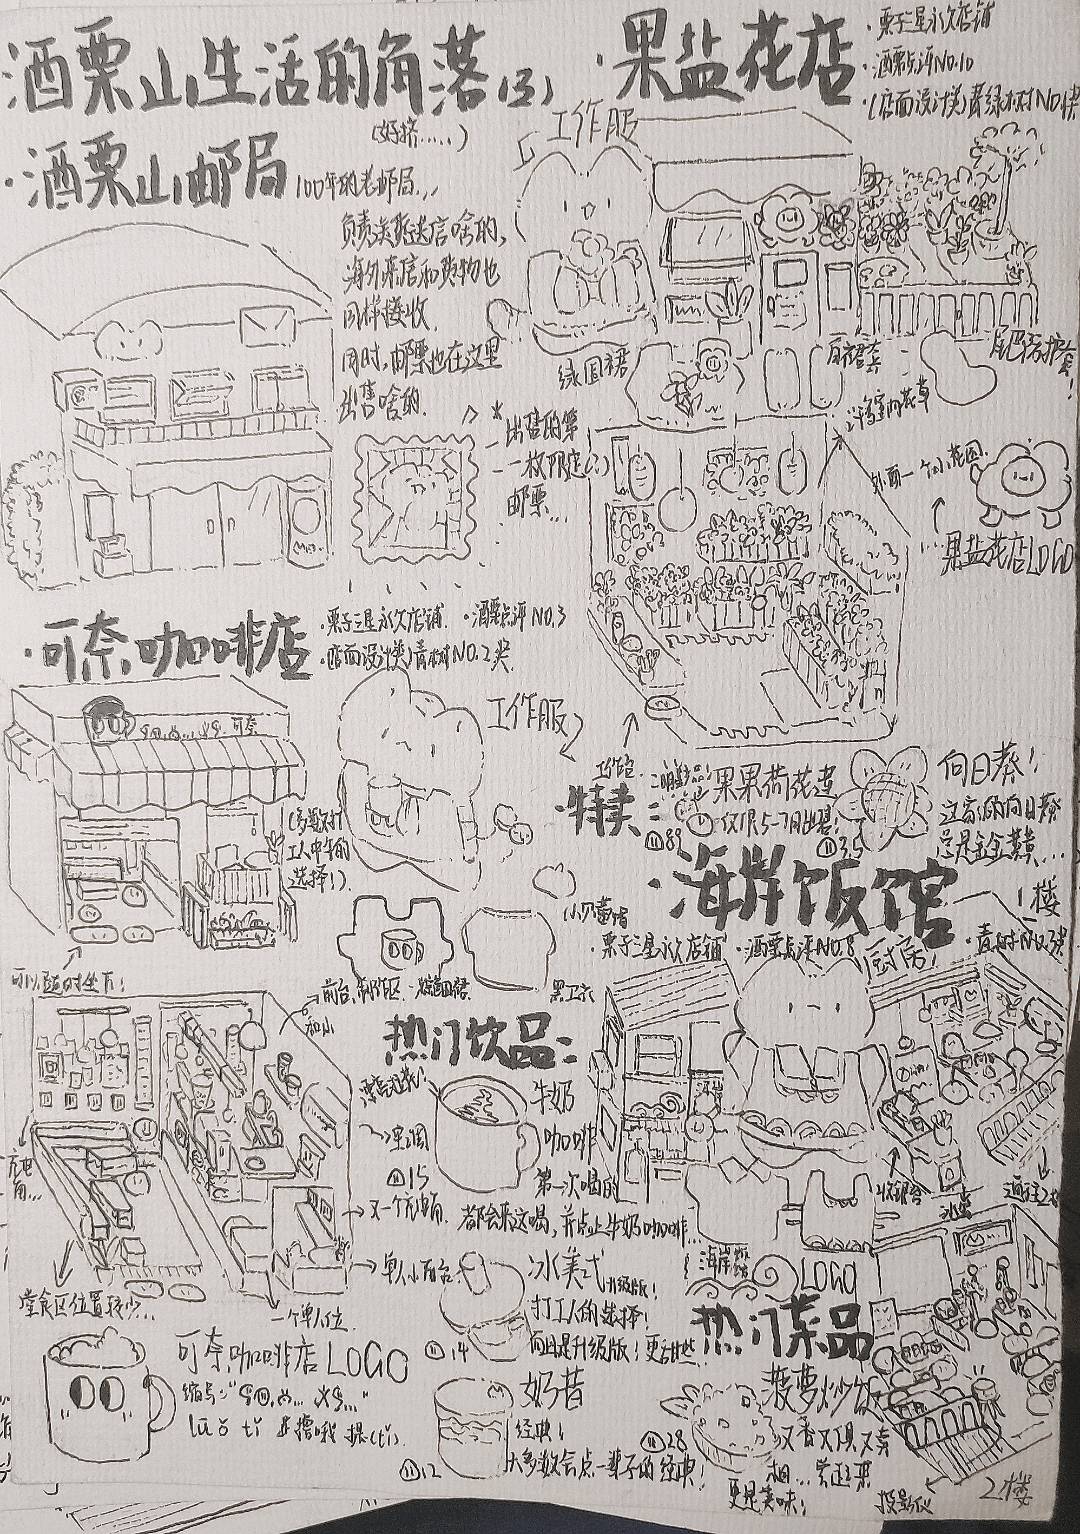 酒栗山生活的角落(3)
(好挤.....)
·酒栗山邮局
100年的老邮局...
负责派送信啥的,
海外来信和货物也
同样接收.
同时,邮票也在这里
出售啥的.
出售的第
一枚限定(?)
邮票...
·果盐花店
·栗子三星永久店铺
·酒栗点评NO.10
·(店面设计类)青绿村NO.1奖
工作服
绿围裙
尾巴保护套!
外面一个小花园.
果盐花店LOGO
·可奈咖啡店
·栗子三星永久店铺
·酒栗点评NO.3
·店面设计类)青村NO.2奖
工作服
(多数对打
工人中午的
选择!)
可以随时坐下!
黑卫衣
前台,制作区
充电
角...
堂食区位置较少...
一个单人位.
又一个充电角.
单人小百台
热门饮品:
牛奶
咖啡
15
第一次喝的
都会来这喝,并点上牛奶咖啡...
冰美式
升级版!
打工人的选择!
而且是升级版!更甜些...
14
奶昔
经典!
大多数会点一辈子的经典!
12
可奈咖啡店LOGO
缩写:
·特卖:
果果荷花建
仅限5-7月出售!
89
向日葵!
这家店的向日葵
总是金金黄黄...
35
·海岸饭馆
·栗子三星永久店铺
·酒栗点评NO.8
1楼
厨房!
收银台
冰柜
通往2楼
海岸饭馆
LOGO
热门菜品
菠萝炒饭
又香又
28
更是美味!
投影仪
2楼